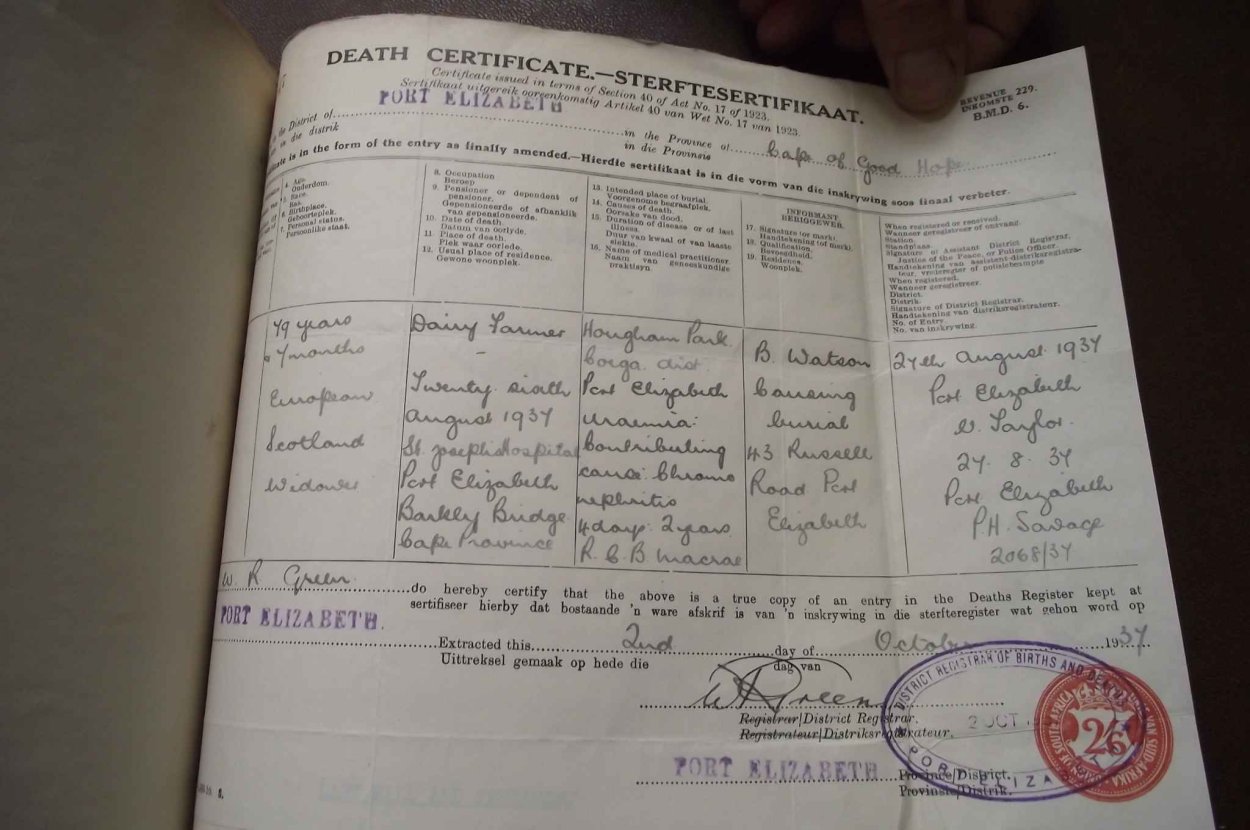 DEATH CERTIFICATE.—STERFTESERTIFIKAAT.
Certificate issued in terms of Section 40 of Act No. 17 of 1923.
Sertifikaat uitgereik ooreenkomstig Artikel 40 van Wet No. 17 van 1923.
REVENUE 229.
INKOMSTE
B.M.D. 6.
PORT ELIZABETH
District of
in die distrik
in the Province of Cape of Good Hope
in die Provinsie
is in the form of the entry as finally amended.—Hierdie sertifikaat is in die vorm van die inskrywing soos finaal verbeter.
4. Age.
Ouderdom.
5. Race.
Ras.
6. Birthplace.
Geboorteplek.
7. Personal status.
Persoonlike staat.
8. Occupation
Beroep
9. Pensioner or dependent of
pensioner.
Gepensioneerde of afhanklik
van gepensioneerde.
10. Date of death.
Datum van oorlyde.
11. Place of death.
Plek waar oorlede.
12. Usual place of residence.
Gewone woonplek.
13. Intended place of burial.
Voorgenome begraafplek.
14. Causes of death.
Oorsake van dood.
15. Duration of disease or of last
illness.
Duur van kwaal of van laaste
siekte.
16. Name of medical practitioner.
Naam van geneeskundige
praktisyn.
INFORMANT
BERIGGEWER.
17. Signature (or mark).
Handtekening (of merk).
18. Qualification.
Bevoegdheid.
19. Residence.
Woonplek.
When registered or received.
Wanneer geregistreer of ontvang.
Station.
Standplaas.
Signature of Assistant District Registrar,
Justice of the Peace, or Police Officer.
Handtekening van assistent-distriksregistra-
teur, vrederegter of polisiebeampte
When registered.
Wanneer geregistreer.
District.
Distrik.
Signature of District Registrar.
Handtekening van distriksregistrateur.
No. of Entry.
No. van inskrywing.
79 years
7 months
European
Scotland
Widower
Dairy Farmer
-
Twenty sixth
August 1937
St. Josephs Hospital
Port Elizabeth
Barkly Bridge
Cape Province
Hougham Park
Coega dist.
Port Elizabeth
Uraemia:
Contributing
cause: Chronic
nephritis
4 days: 2 years
R. C. B. Macrae
B. Watson
Causing
burial
43 Russell
Road Port
Elizabeth
27th August 1937
Port Elizabeth
Taylor.
27. 8. 37
Port Elizabeth
P.H. Savage
2068/37
W. R. Green do hereby certify that the above is a true copy of an entry in the Deaths Register kept at
sertifiseer hierby dat bostaande 'n ware afskrif is van 'n inskrywing in die sterfteregister wat gehou word op
PORT ELIZABETH.
Extracted this 2nd day of October 1937.
Uittreksel gemaak op hede die dag van
W R Green
Registrar/District Registrar.
Registrateur/Distriksregistrateur.
PORT ELIZABETH
Province/District.
Provinsie/Distrik.
DISTRICT REGISTRAR OF BIRTHS AND DEATHS
2 OCT
PORT ELIZABETH
2/6